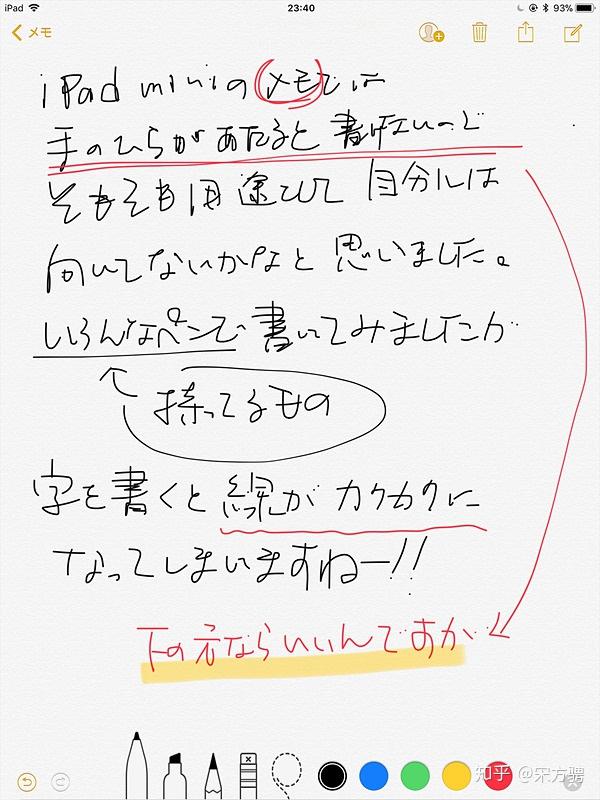 iPad 23:40 93%
メモ
iPad miniのメモでは
手のひらがあたると書けないので
そもそも用途として自分には
向いてないかなと思いました。
いろんなペンで書いてみましたが
持ってるもの
字を書くと線がカクカクに
なってしまいますねー!!
下の方ならいいんですが
知乎 @宋方骋